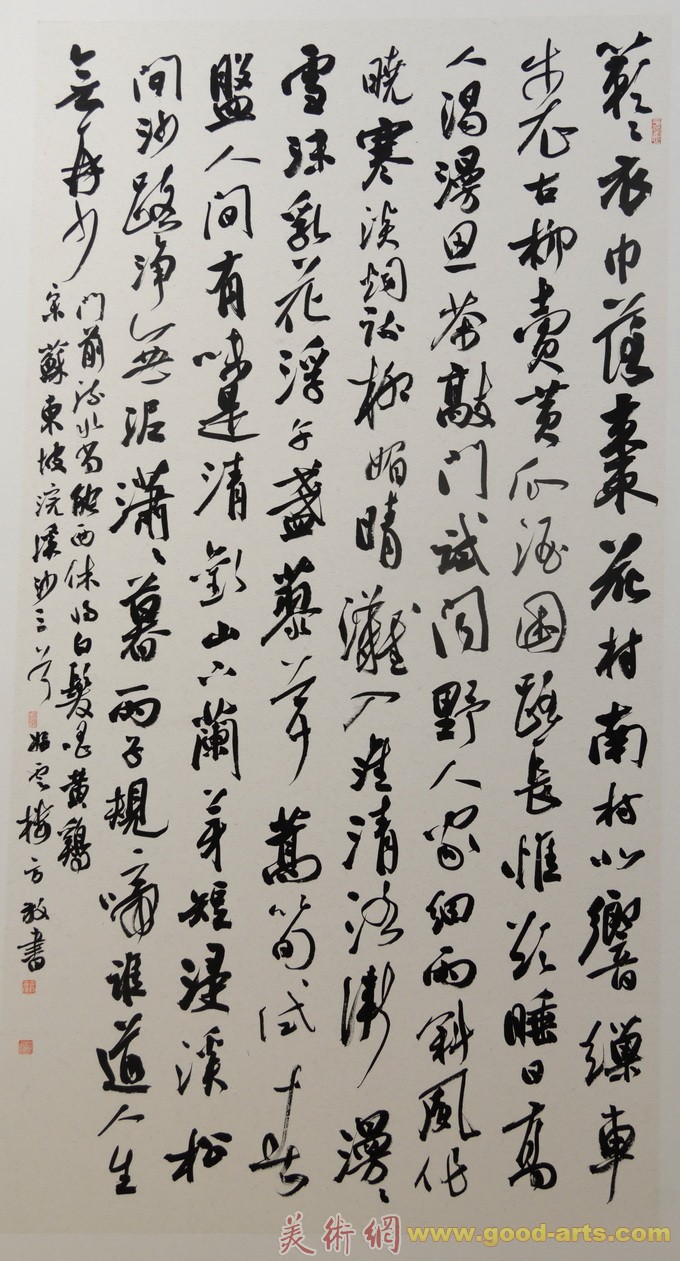 簌々衣巾落棗花村南村北響繅車
牛衣古柳賣黄瓜酒困路長惟欲睡日高
人渴漫思茶敲門試問野人家細雨斜風作
曉寒淡烟疏柳媚晴灘入淮清洛漸漫々
雪沫乳花浮午盞蓼茸蒿筍試春
盤人間有味是清歡山下蘭芽短浸溪松
間沙路淨無泥瀟々暮雨子規啼誰道人生
無再少
門前流水尚能西休將白髮唱黄鷄
宋蘇東坡浣溪沙三首 雲樓方放書
美術網 www.good-arts.com